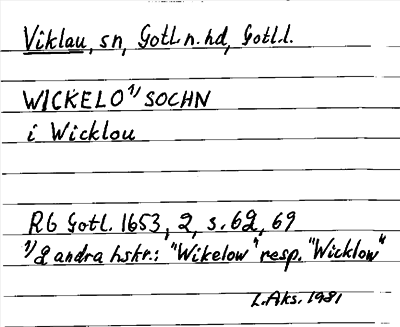 Viklau, sn, Gotl. n. hd, Gotl.l.
WICKELO ¹⁾ SOCHN
i Wicklou
Rb Gotl. 1653, 2, s. 62, 69
¹⁾ 2 andra hskr.: "Wikelow" resp. "Wicklow"
L. Aks. 1981